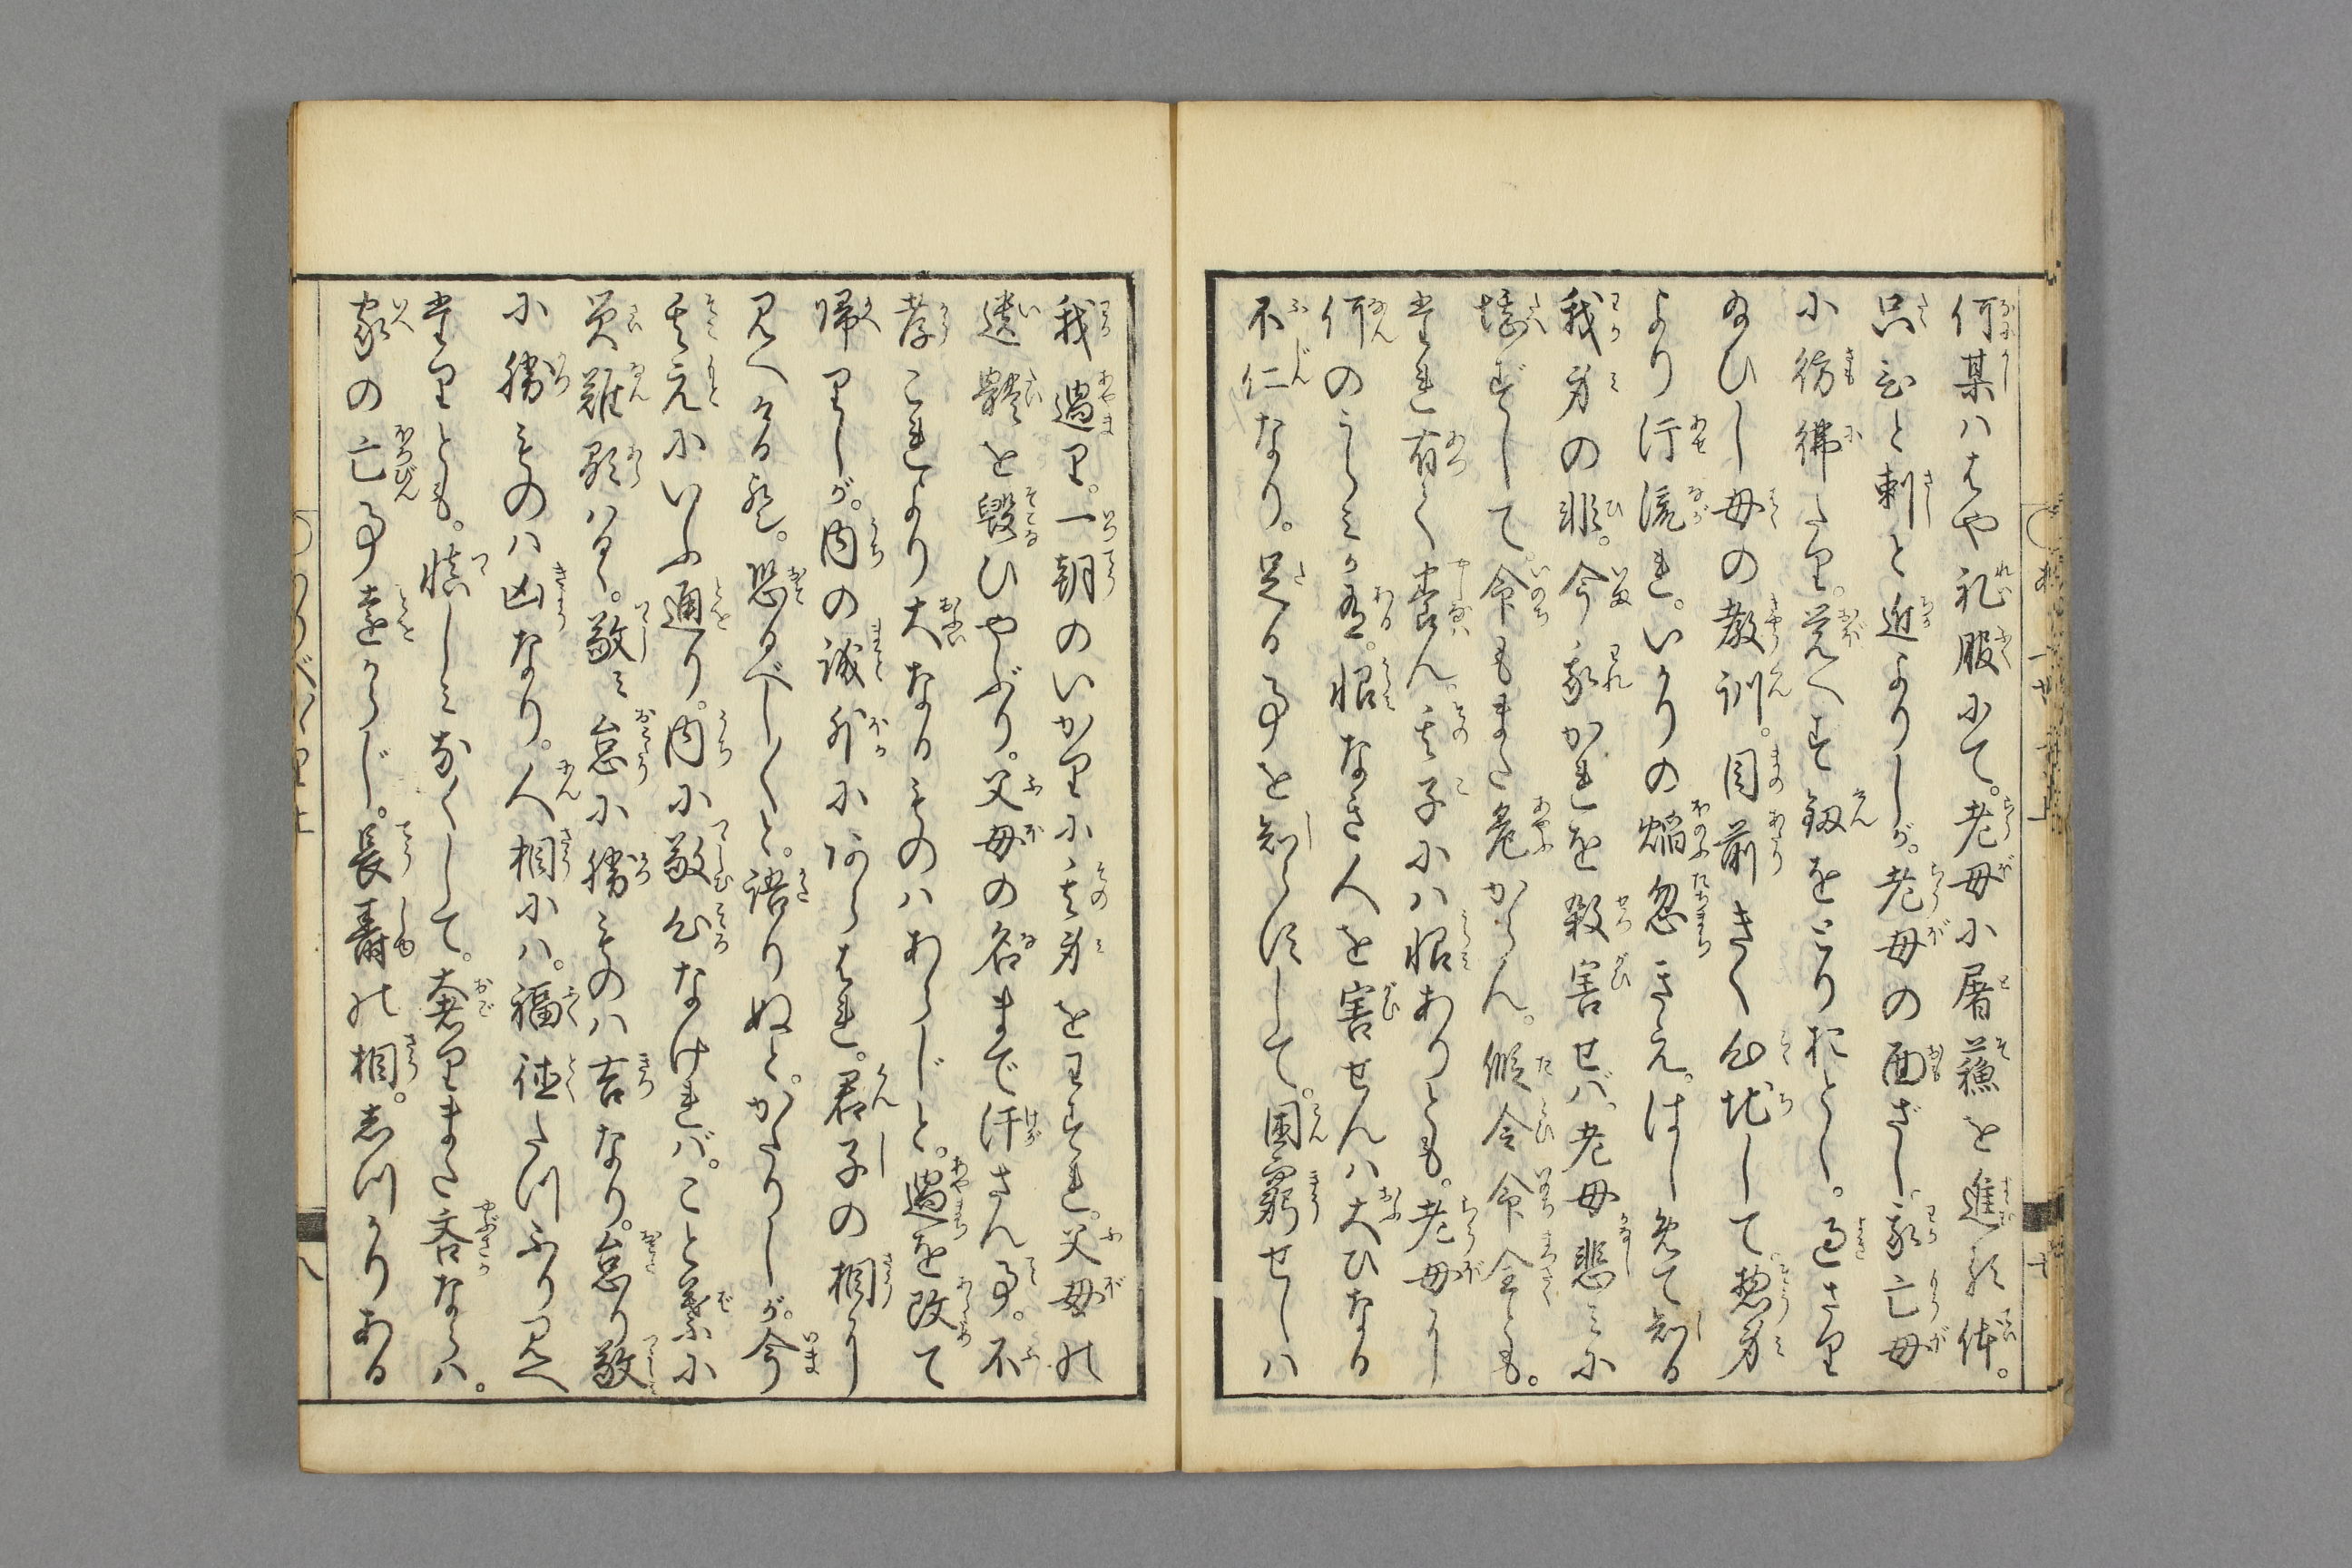 何某ハはや礼服にて。老母に屠蘓を進る体。
只ひと刺と近よりしが。老母の面ざし。我亡母
に彷彿たり。覚へず釼をとりおとし。過さり
給ひし母の教訓。目前きく心地して。惣身
より汗流れ。いかりの焔忽きえ。はじめて知る
我身の非。今我かれを殺害せバ。老母悲みに
堪ずして。命もまた危からん。縦令命全とも。
たれ有てか養ん。其子にハ恨ありとも。老母に
何のうらみか有。恨なき人を害せんハ大ひなる
不仁なり。足る事を知らずして。困窮せしハ
我過り。一朝のいかりに其身をわすれ。父母の
遺體を毀ひやぶり。父母の名まで汗さん事。不
孝これより大なるものハあらじと。過を改て
帰りしが。内の誠外にあらはれ。君子の相と
見へける也。恐るべし〱と。語りぬと。かたりしが。今
其元にいふ通り。内に敬心なけれバ。こと業に
災難顕ハるゝ。敬ミ怠に勝ものハ吉なり。怠り敬
に勝ものハ凶なり。人相にハ。福徳たつぷり見へ
たりとも。慎しミなくして。奢りまた吝ならハ。
家の亡事遠からじ。長寿の相。しつかりある